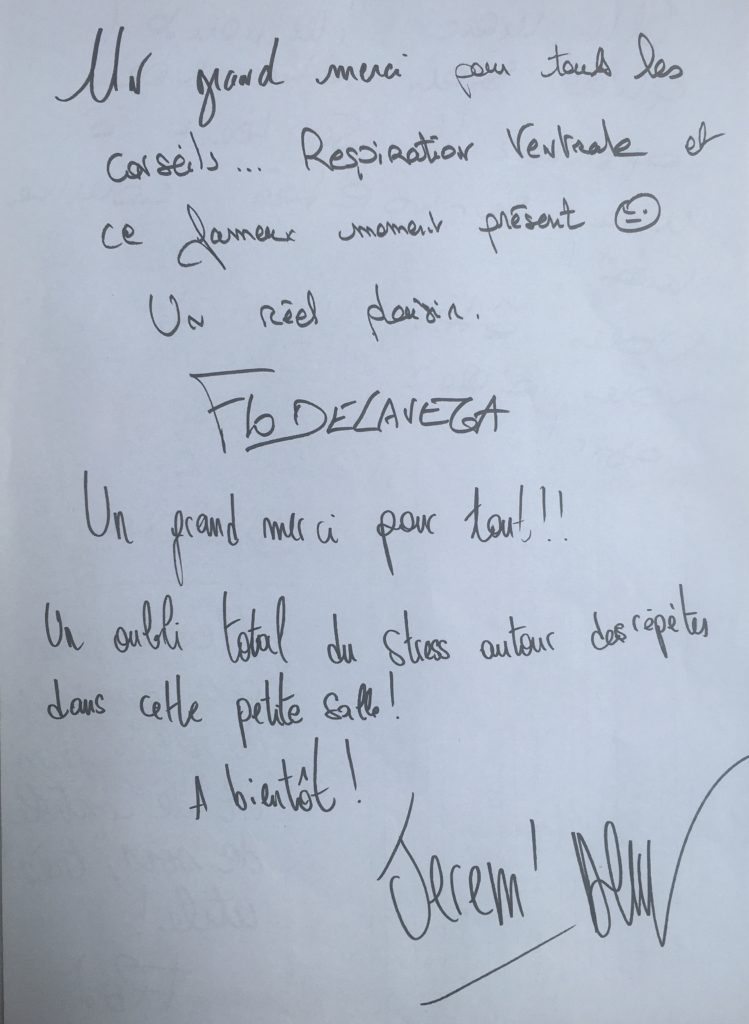 Un grand merci pour touts les
conseils... Respiration Ventrale et
ce fameux moment présent
Un réel plaisir.
Flo DELAVEGA
Un grand merci pour tout!!
Un oubli total du stress autour des répètes
dans cette petite salle!
A bientôt!
Jerem'